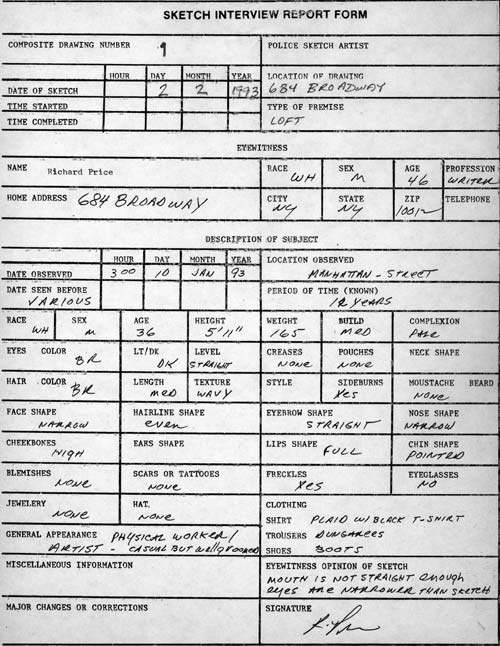 SKETCH INTERVIEW REPORT FORM
COMPOSITE DRAWING NUMBER 9
POLICE SKETCH ARTIST
HOUR DAY MONTH YEAR
DATE OF SKETCH 2 2 1993
LOCATION OF DRAWING
684 BROADWAY
TIME STARTED
TIME COMPLETED
TYPE OF PREMISE
LOFT
EYEWITNESS
NAME Richard Price
RACE WH
SEX M
AGE 46
PROFESSION WRITER
HOME ADDRESS 684 BROADWAY
CITY NY
STATE NY
ZIP 10012
TELEPHONE
DESCRIPTION OF SUBJECT
HOUR DAY MONTH YEAR
DATE OBSERVED 3:00 10 JAN 93
LOCATION OBSERVED
MANHATTAN - STREET
DATE SEEN BEFORE
VARIOUS
PERIOD OF TIME (KNOWN)
12 YEARS
RACE WH
SEX M
AGE 36
HEIGHT 5'11"
WEIGHT 165
BUILD MED
COMPLEXION PALE
EYES COLOR BR
LT/DK DK
LEVEL STRAIGHT
CREASES NONE
POUCHES NONE
NECK SHAPE
HAIR COLOR BR
LENGTH MED
TEXTURE WAVY
STYLE
SIDEBURNS Yes
MOUSTACHE BEARD
NONE
FACE SHAPE
NARROW
HAIRLINE SHAPE
even
EYEBROW SHAPE
STRAIGHT
NOSE SHAPE
NARROW
CHEEKBONES
HIGH
EARS SHAPE
LIPS SHAPE FULL
CHIN SHAPE
POINTED
BLEMISHES
NONE
SCARS OR TATTOOES
NONE
FRECKLES
Yes
EYEGLASSES
NO
JEWELERY
NONE
HAT.
NONE
CLOTHING
SHIRT PLAID W/ BLACK T-SHIRT
TROUSERS DUNGAREES
SHOES BOOTS
GENERAL APPEARANCE PHYSICAL WORKER/
ARTIST - CASUAL BUT WELL GROOMED
MISCELLANEOUS INFORMATION
EYEWITNESS OPINION OF SKETCH
MOUTH IS NOT STRAIGHT enough
eyes ARE NARROWER THAN SKETCH
MAJOR CHANGES OR CORRECTIONS
SIGNATURE